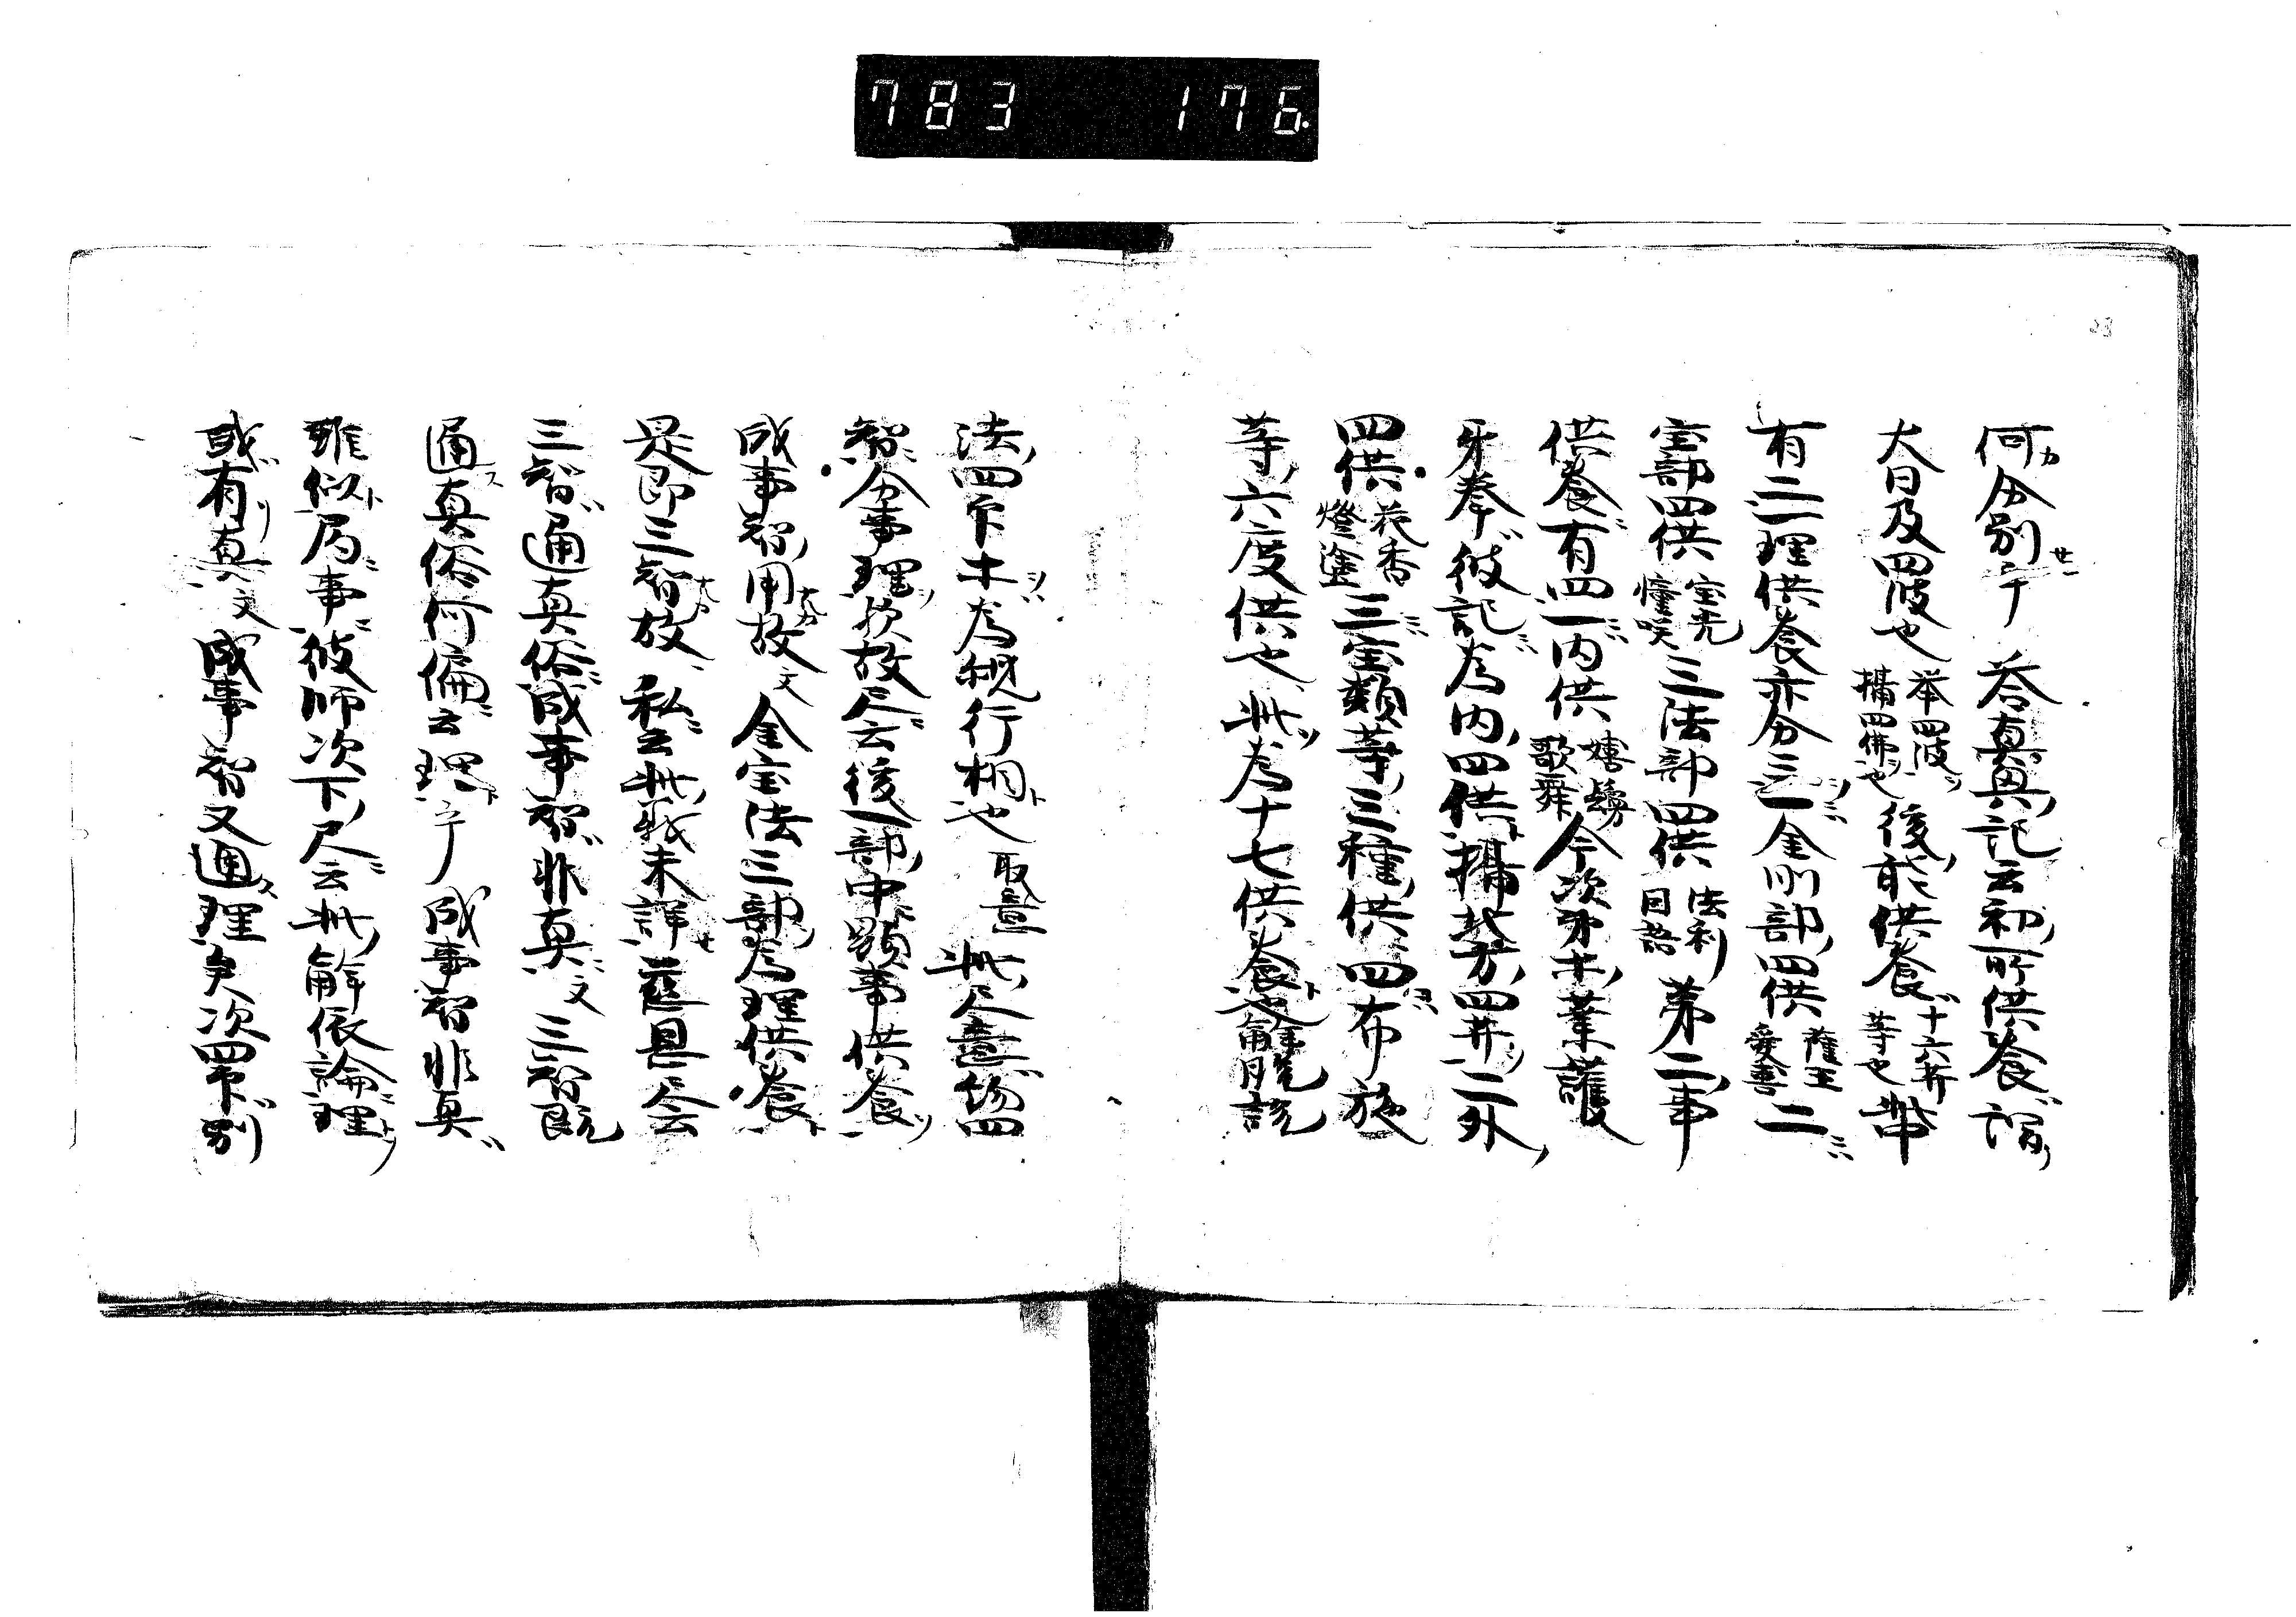 783 176
28
何分別乎 答真興記云初所供養謂
大日及四波也 举四波摂四佛也 後能供養 十六并等也 帯
有二一理供養亦分三一金剛部四供 薩王愛喜 二
宝部四供 宝光幢咲 三法部四供 法利因語 第二事
供養有四一内供 嬉鬘歌舞 今次第木業護
牙拳彼記為内四供摂北方四井二外
四供 花香燈塗 三宝類等三種供四布施
等六度供也 此為十七供養也解脱
法四下木為観行相也 取意 此尺意
智分事理故尺云後一部中顕事供養
成事智用故文 金宝法三部為理供養
是即三智故 私云此義未詳慈恩尺云
三智通真俗成事智非真文 三智既
通真俗何偏云理乎 成事智非真
雖似局事彼師次下尺云此解依論理
或有真文 成事智又通理矣次四下別